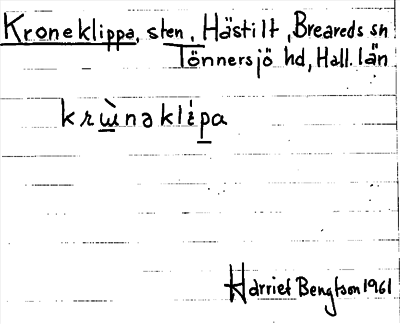 Kroneklippa, sten, Hästilt, Breareds sn
Tönnersjö hd, Hall. län
krɯ̀nəklípa
Harriet Bengtson 1961